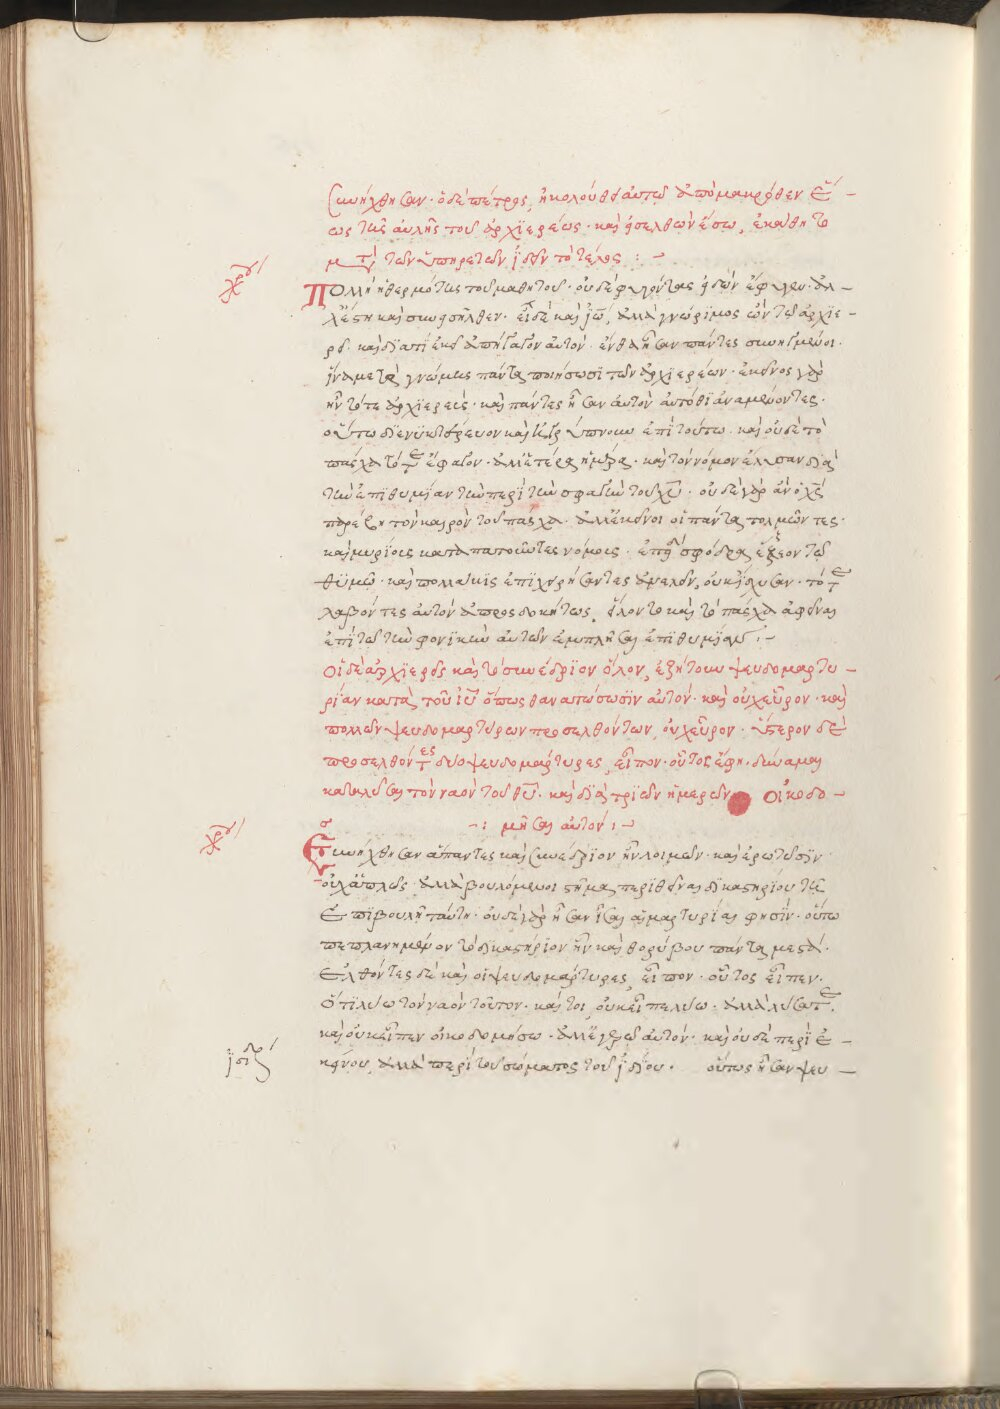 συνήχθησαν· ὁ δὲ πέτρος, ἠκολούθει αὐτῶ ἀπὸ μακρόθεν ἕ-
ως τῆς αὐλῆς τοῦ ἀρχϊερέως· καὶ εἰσελθὼν ἔσω, ἐκάθητο
μετὰ τῶν ὑπηρετῶν ἰδεῖν τὸ τέλος :-
χρυ
Πολλὴ ἡ θερμότης τοῦ μαθητοῦ· οὐδὲ φεύγοντας ἰδὼν ἔφυγεν· ἀλ-
λ' ἔστη καὶ συνεισῆλθεν· εἰ δὲ καὶ ἰω, ἀλλὰ γνώρϊμος ὢν τῶ ἀρχϊε-
ρεῖ· καὶ διατὶ ἐκεῖ ἀπήγαγον αὐτὸν· ἔνθα ἦσαν πάντες συνηγμένοι·
ἵνα μετὰ γνώμης πάντα ποιήσωσϊ τῶν ἀρχϊερέων· ἐκεῖνος γὰρ
ἦν τότε ἀρχϊερεὺς· καὶ πάντες ἦσαν αὐτὸν αὐτόθϊ ἀναμένοντες·
οὕτω διενυκτέρευον καὶ ἠγρύπνουν ἐπὶ τούτω· καὶ οὐδὲ τὸ
πάσχα τότε ἔφαγον· ἀλλ' ἑτέρα ἡμέρα· καὶ τὸν νόμον ἔλυσαν διὰ
τὴν ἐπϊθυμίαν τὴν περὶ τὴν σφαγὴν τοῦ χυ· οὐδὲ γὰρ ἂν ὁ χς
παρέβη τὸν καιρὸν τοῦ πάσχα· ἀλλ' ἐκεῖνοι οἱ πάντα τολμῶντες·
καὶ μυρίους καταπατοῦντες νόμους· ἐπειδὴ σφόδρα ἔζεον τῶ
θϋμῶ· καὶ πολλάκϊς ἐπϊχειρήσαντες ἀνελεῖν, οὐκ ἴσχυσαν· τότε
λαβόντες αὐτὸν ἀπροσδοκήτως, εἵλοντο καὶ τὸ πάσχα ἀφεῖναι
ἐπὶ τῶ τὴν φονϊκὴν αὐτῶν ἐμπλῆσαι ἐπϊθυμίαν :-
Οἱ δὲ ἀρχϊερεῖς καὶ τὸ συνέδρϊον ὅλον, ἐζήτουν ψευδομαρτυ-
ρίαν κατὰ τοῦ ἰυ ὅπως θανατώσωσϊν αὐτὸν· καὶ οὐχ εὗρον· καὶ
πολλῶν ψευδομαρτύρων προσελθόντων, οὐχ εὗρον· ὕστερον δὲ
προσελθόντες δύο ψευδομάρτυρες, εἶπον· οὗτος ἔφη· δύναμαι
καταλῦσαι τὸν ναὸν τοῦ θυ· καὶ διὰ τρϊῶν ἡμερῶν οἰκοδο-
-: μῆσαι αὐτόν :-
χρυ
Συνήχθησαν ἅπαντες καὶ συνέδρϊον ἦν λοιμῶν· καὶ ἐρωτῶσϊν
οὐχ ἁπλῶς· ἀλλὰ βουλόμενοι σχῆμα περϊθεῖναι δϊκαστηρίου τῆ
ἐπϊβουλῆ ταύτη· οὐδὲ γὰρ ἦσαν ἴσαι αἱ μαρτυρίαι φησΐν· οὕτω
πεπλανημένον τὸ δικαστήρϊον ἦν καὶ θορύβου πάντα μεστά·
Ἐλθόντες δὲ καὶ οἱ ψευδομάρτυρες, εἶπον· οὗτος εἶπεν·
Ὅτϊ λύω τὸν ναὸν τοῦτον· καίτοι, οὐκ εἶπε λύω· ἀλλὰ λύσατε·
καὶ οὐκ εἶπεν οἰκοδομήσω· ἀλλ' ἐγερῶ αὐτόν· καὶ οὐδὲ περϊ ἐ-
ϊσιδ
κείνου, ἀλλὰ περὶ τοῦ σώματος τοῦ ἰδίου· οὕτως ἦσαν ψευ-